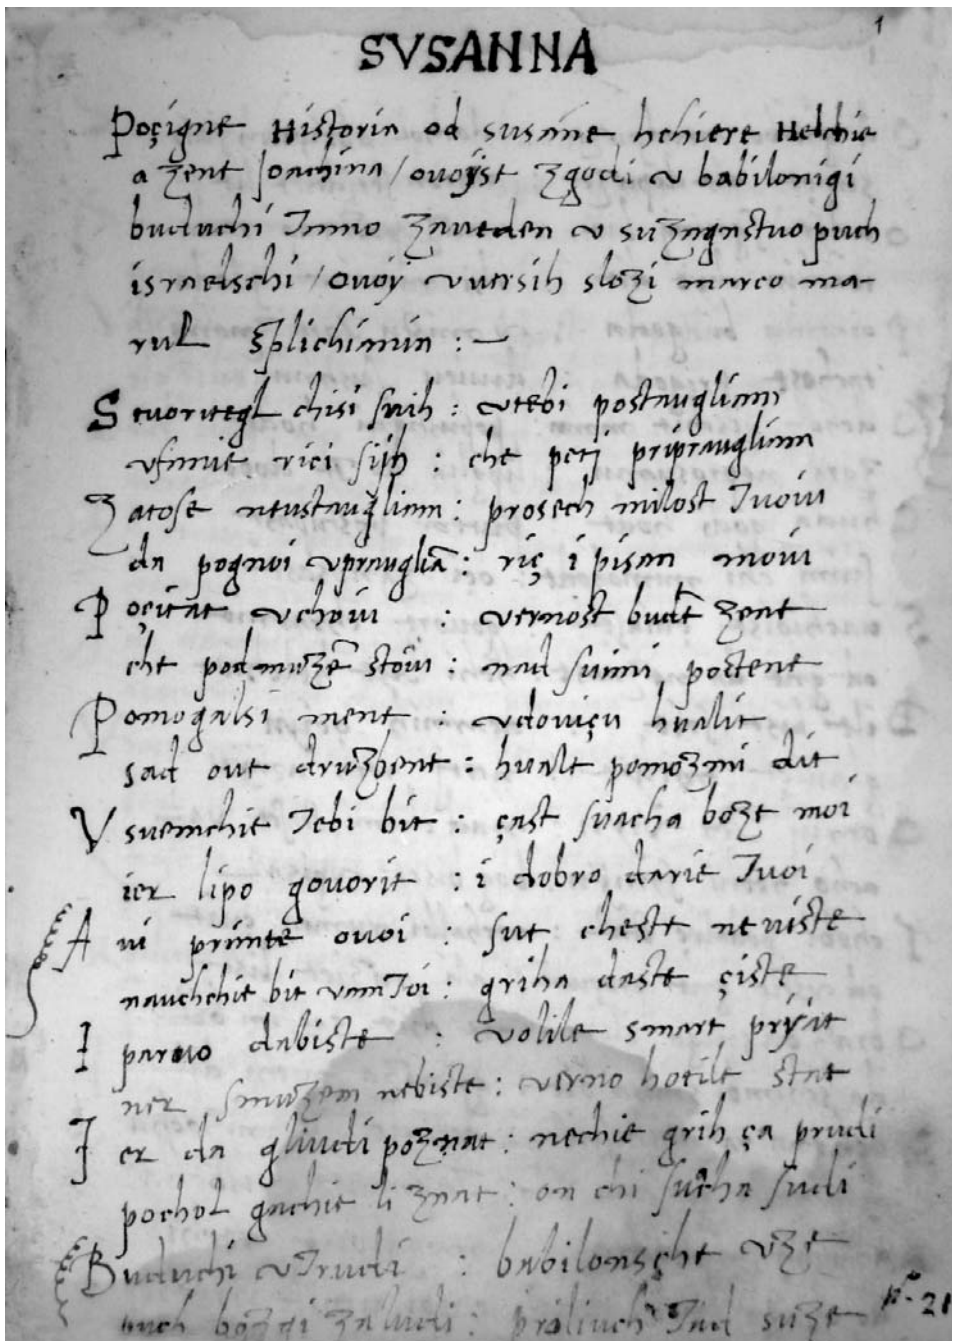 1
SVSANNA
Poçigne Historia od susane hchiere Helchie
a zene Joachina / ovoyst zgodi v babilonigi
buduchi Tamo zaueden v suzagnstuo puch
israelschi / ovoy vversih slozi marco ma-
rul Splichianin : —
Stuoritegl chisi suih : vtebi postaugliam
vfanie rici sijh : che peti pripraugliam
Zatose neustaugliam : prosech milost Tuoiu
da pognoi vpraugliā : riç i pisan moiu
Poçitat vchoiu : vernost budē zene
che pod muzē stoiu : nad suimi postene
Pomogalsi mene : vdouiçu hualit
sad oue druzbene : hvale pomozmi dit
V suemchie Tebi bit : çast suacha boze moi
ier lipo gouorit : i dobro darie Tuoi
A vi primte ovoi : sue cheste neviste
nauchchie bit vamToi : griha daste çiste
I parvo dabiste : volile smart pryat
ner smuzem nebiste : verno hotile stat
Jer da gliudi poznat : nechie grih ça prudi
pochol gachie li znat : on chi sucha sudi
Buduchi vTrudi : babilonsche vze
puch bozgi zaludi : Tad suze
nº. 21